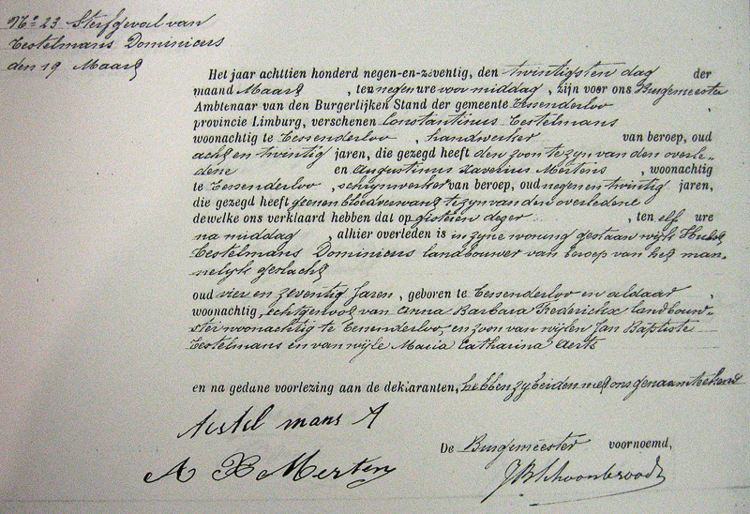 N° 23 Sterfgeval van
Testelmans Dominicus
den 19 Maart
Het jaar achttien honderd negen-en-zeventig, den twintigsten dag der
maand Maart, ten negen ure voor middag, zijn voor ons Burgemeester
Ambtenaar van den Burgerlijken Stand der gemeente Tessenderloo
provincie Limburg, verschenen Constantinus Testelmans
woonachtig te Tessenderloo, handwerker van beroep, oud
acht en twintig jaren, die gezegd heeft den zoon te zyn van den overle-
dene en Augustinus Xaverius Mertens, woonachtig
te Tessenderloo, schrynwerker van beroep, oud negen en twintig jaren,
die gezegd heeft geenen bloedverwant te zyn van den overledene
dewelke ons verklaard hebben dat op gisteren dezer, ten elf ure
na middag, alhier overleden is in zyne woning gestaan wijk Hulst
Testelmans Dominicus landbouwer van beroep van het man-
nelyk geslacht
oud vier en zeventig Jaren, geboren te Tessenderloo en aldaar
woonachtig, echtgenoot van Anna Barbara Frederickx landbouw-
ster woonachtig te Tessenderloo, en zoon van wijlen Jan Baptiste
Testelmans en van wijle Maria Catharina Aerts
en na gedane voorlezing aan de deklaranten, hebben zy beiden met ons genaamteekend
Testel mans
A X Merten
De Burgemeester voornoemd,
J B Schoonbroodt